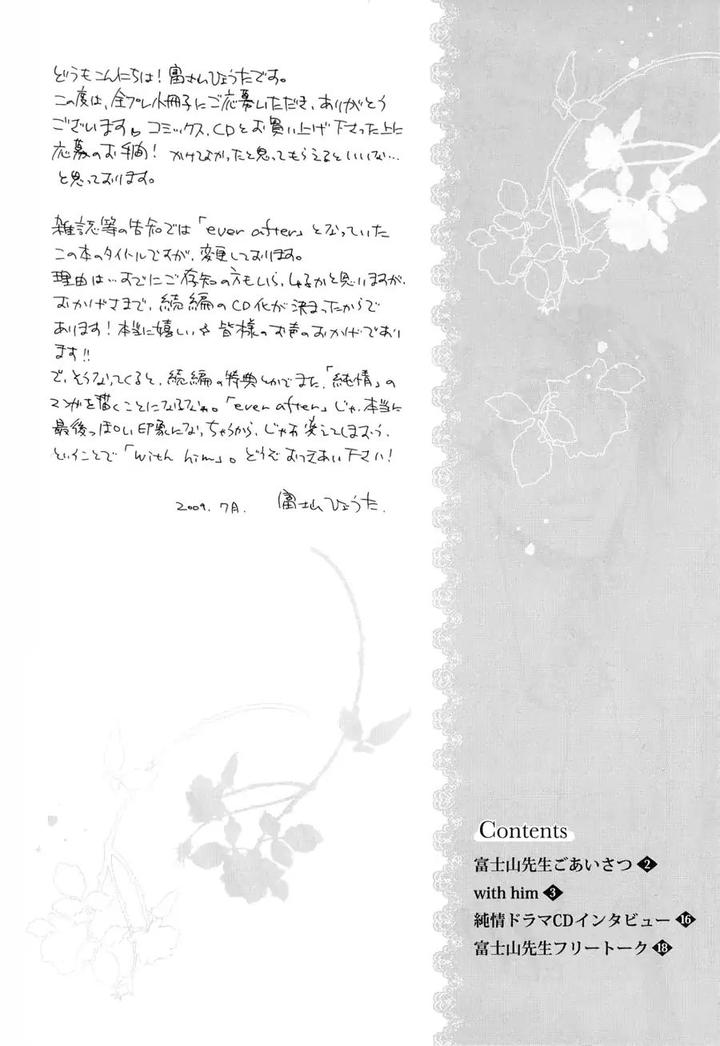 どうもこんにちは！富士山ひょうたです。
この度は、全プレ小冊子にご応募いただき、ありがとう
ございます。コミックス、CDとお買い上げ下さった上に
応募のお手間！かけてよかったと思ってもらえるといいな…
と思っております。
雑誌等の告知では「ever after」となっていた
この本のタイトルですが、変更しております。
理由は…すでにご存知の方もいらっしゃるかと思いますが、
おかげさまで、続編のCD化が決まったからで
あります！本当に嬉しい、皆様のお声のおかげであり
ます!!
で、そうなってくると、続編の特典とかでまた「純情」の
マンガを描くことになるなぁ。「ever after」じゃ、本当に
最後っぽい印象になっちゃうから、じゃあ変えてしまおう、
ということで「with him」。どうぞおつきあい下さい！
2009. 7月. 富士山ひょうた.
Contents
富士山先生ごあいさつ 2
with him 3
純情ドラマCDインタビュー 16
富士山先生フリートーク 18